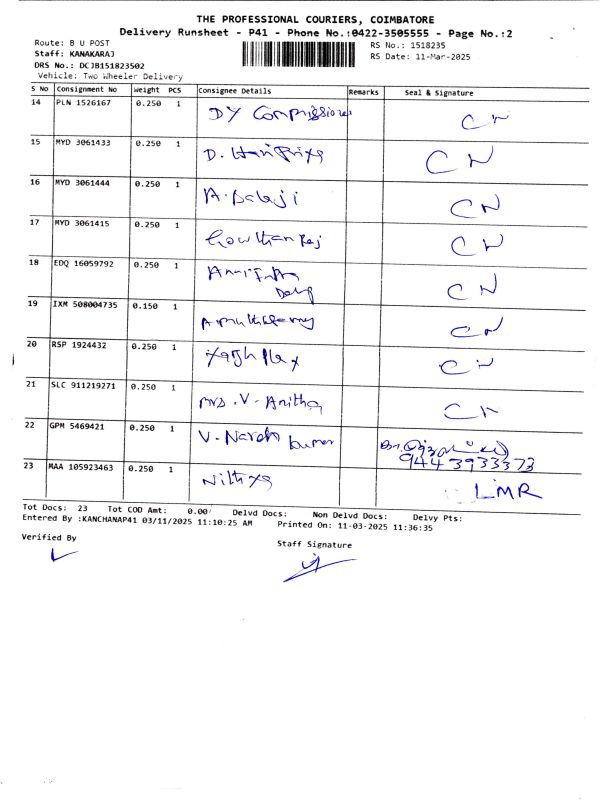 THE PROFESSIONAL COURIERS, COIMBATORE
Delivery Runsheet - P41 - Phone No.:0422-3505555 - Page No.:2
Route: B U POST
RS No.: 1518235
Staff: KANAKARAJ
RS Date: 11-Mar-2025
DRS No.: DCJB151823502
Vehicle: Two Wheeler Delivery
S No Consignment No Weight PCS Consignee Details Remarks Seal & Signature
14 PLN 1526167 0.250 1 DY Commissioner CN
15 MYD 3061433 0.250 1 D. Hari Priya CN
16 MYD 3061444 0.250 1 A. Balaji CN
17 MYD 3061415 0.250 1 Gowthan Raj CN
18 EDQ 16059792 0.250 1 CN
19 IXM 508004735 0.150 1 CN
20 RSP 1924432 0.250 1 CN
21 SLC 911219271 0.250 1 Mrs. V. Anitha CN
22 GPM 5469421 0.250 1 V. Naresh kumar
9443933373
23 MAA 105923463 0.250 1 Nithya LMR
Tot Docs: 23 Tot COD Amt: 0.00/ Delvd Docs: Non Delvd Docs: Delvy Pts:
Entered By :KANCHANAP41 03/11/2025 11:10:25 AM Printed On: 11-03-2025 11:36:35
Verified By
Staff Signature